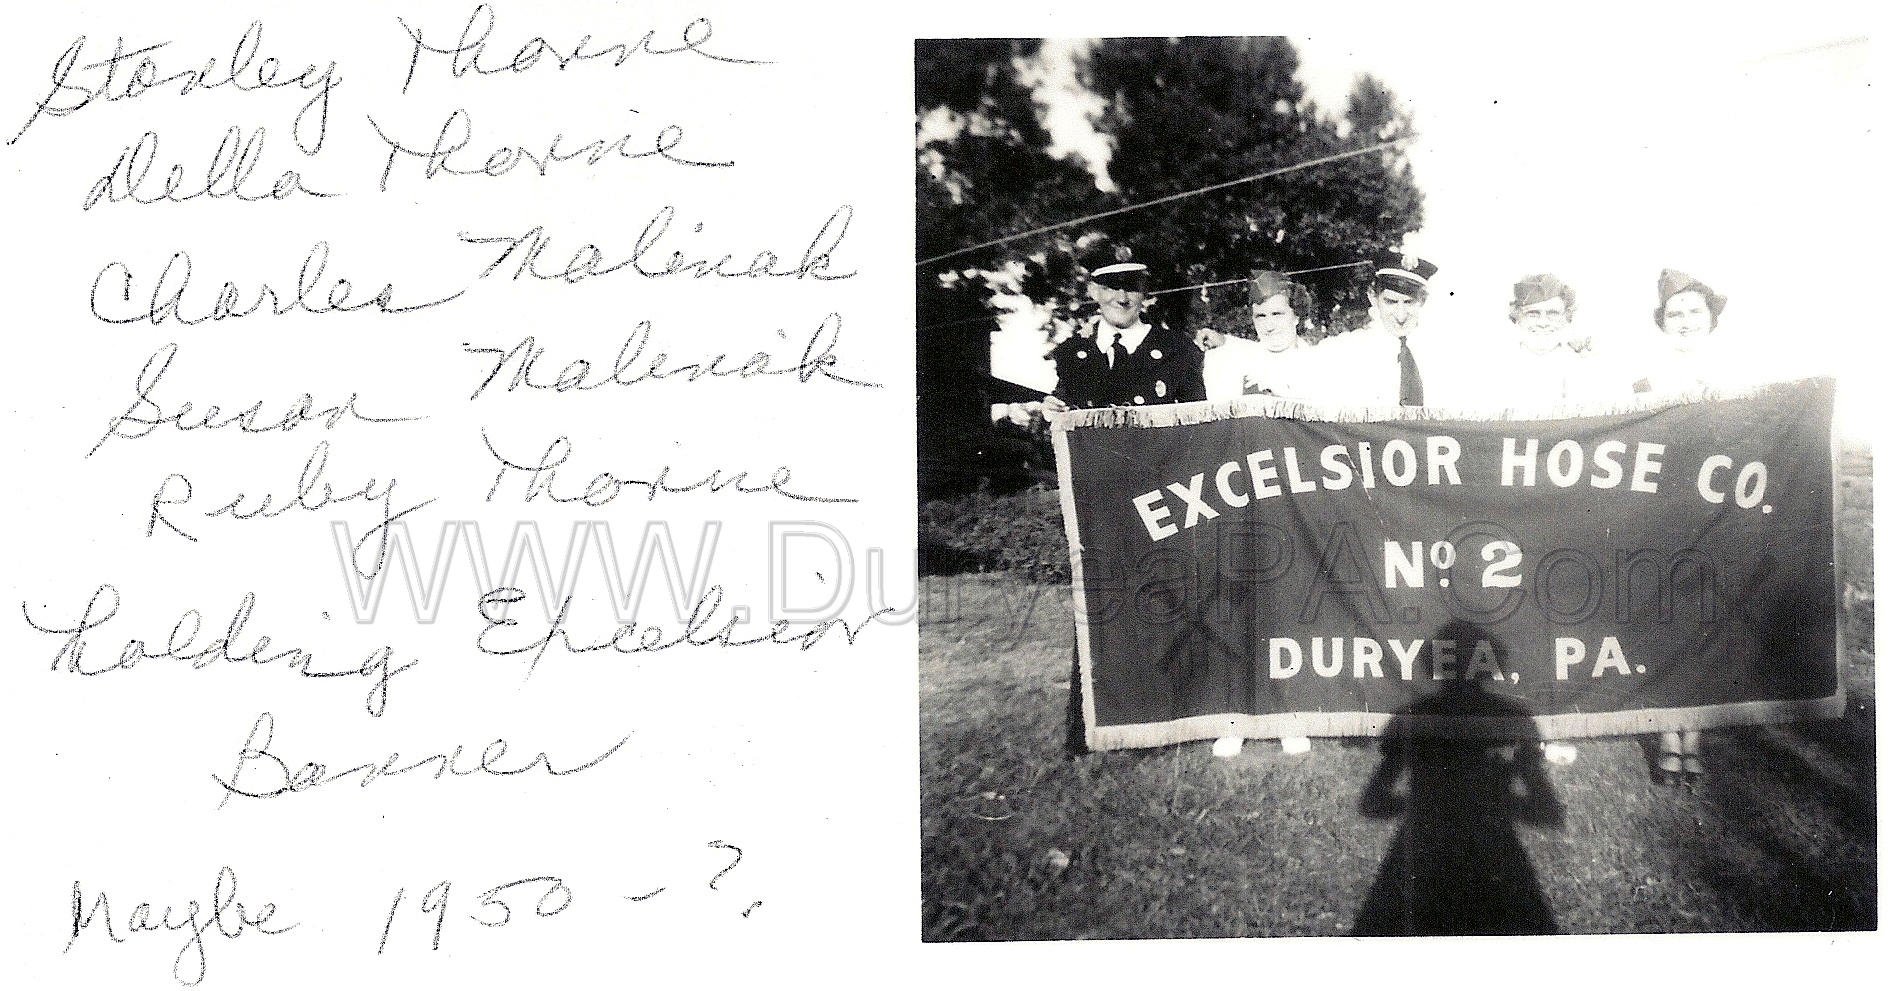 Stanley Thorne
Della Thorne
Charles Malinak
Susan Malinak
Ruby Thorne
Holding Excelsior
Banner
Maybe 1950 - ?
EXCELSIOR HOSE CO.
No. 2
DURYEA, PA.
WWW.DuryeaPA.Com